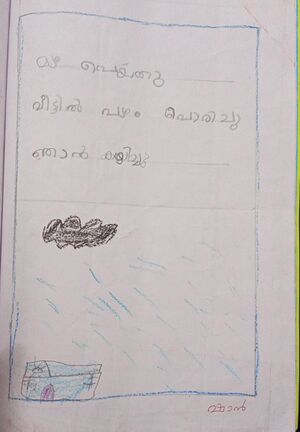 മഴ പെയ്തു
വീട്ടിൽ പഴം പൊരിച്ചു
ഞാൻ കഴിച്ചു